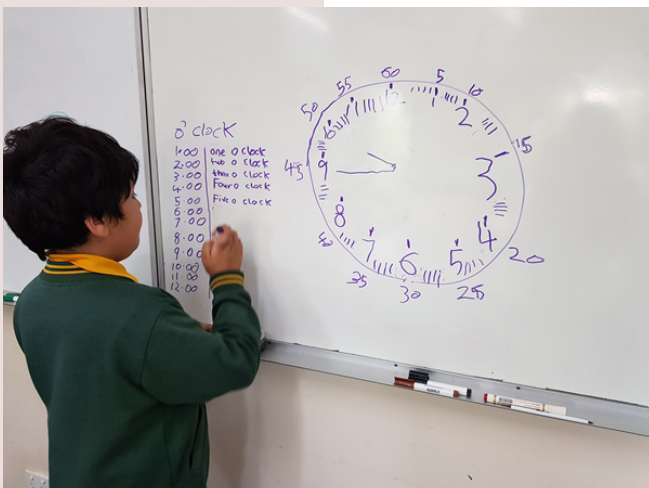 O' clock
1:00 one o clock
2:00 two o clock
3:00 three o clock
4:00 Four o clock
5:00 Five o clock
6:00
7:00
8:00
9:00
10:00
11:00
12:00
60
5
10
15
20
25
30
35
40
45
50
55
12
1
2
3
4
5
6
7
8
9